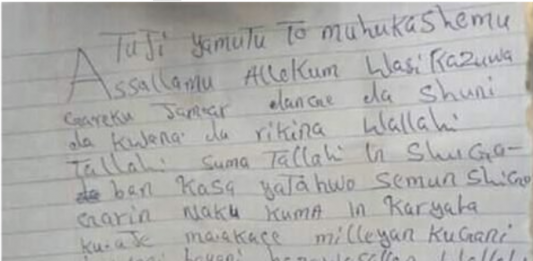 Tuji yamutu To muhukashemu
Assallamu Allekum Wasi Kazuwa
Gareku Jamaar dancue da Shuni
da kwana da rikina Wallahi
Tallahi Suma Tallahi In Shuga-
ban Kasa yatahwo Semun Shiga
Garin Naku kumA In Karyata
ku.aje ma.akace milleyan kuGani